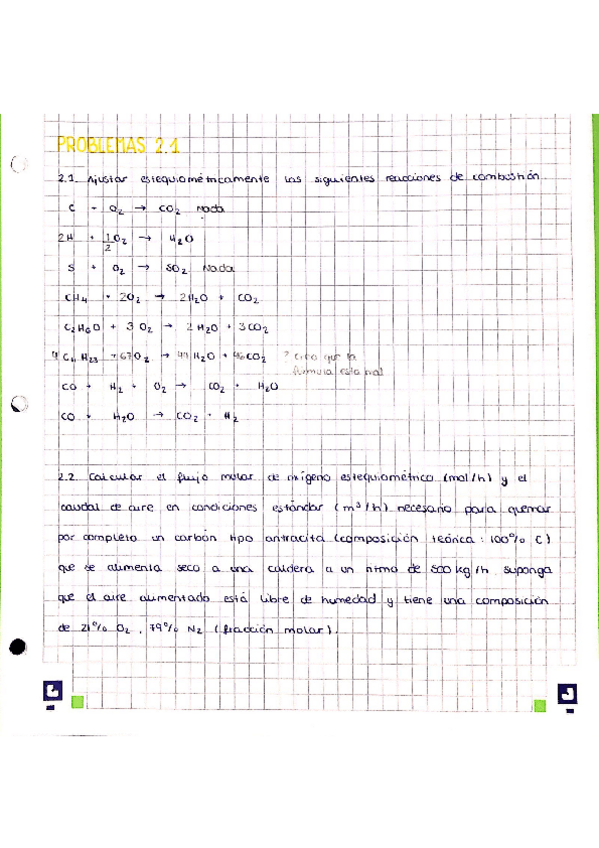 PROBLEMAS 2.1
2.1 Ajustar estequiométricamente las siguientes reacciones de combustión.
C + O2 → CO2 Nada
2H + 1/2 O2 → H2O
S + O2 → SO2 Nada
CH4 + 2O2 → 2H2O + CO2
C2H6O + 3 O2 → 2 H2O + 3CO2
+ 67O2 → H2O + 46CO2 ? creo que la
fórmula esta mal
CO + H2 + O2 → CO2 + H2O
CO + H2O → CO2 + H2
2.2 Calcular el flujo molar de oxígeno estequiométrico (mol/h) y el
caudal de aire en condiciones estándar (m3/h) necesario para quemar
por completo un carbón tipo antracita (composición teórica: 100% C)
que se alimenta seco a una caldera a un ritmo de 500 kg/h suponga
que el aire alimentado está libre de humedad y tiene una composición
de 21% O2, 79% N2 (fracción molar).